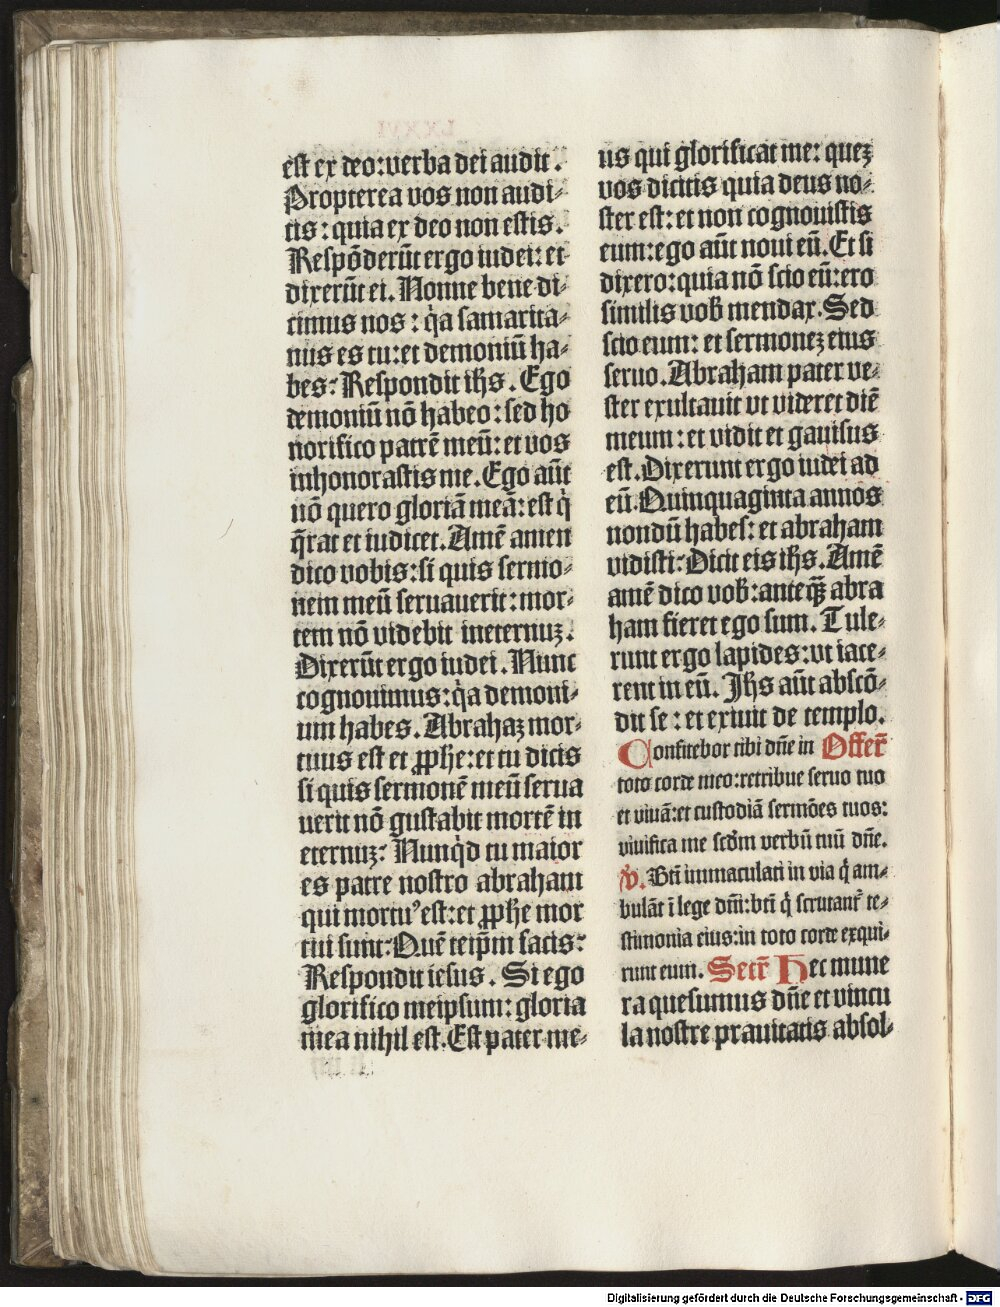 est ex deo: verba dei audit.
Propterea vos non audi-
tis: quia ex deo non estis.
Respōderūt ergo iudei: et
dixerūt ei. Nonne bene di-
cimus nos: q̇a samarita-
nus es tu: et demoniū ha-
bes? Respondit ih̄s. Ego
demoniū nō habeo: sed ho
norifico patrē meū: et vos
inhonorastis me. Ego aūt
nō quero gloriā meā: est q̇
q̄rat et iudicet. Amē amen
dico vobis: si quis sermo-
nem meū seruauerit: mor-
tem nō videbit ineternuꝫ.
Dixerūt ergo iudei. Nunc
cognouimus: q̇a demoni-
um habes. Abrahaꝫ mor-
tuus est et ꝓphe: et tu dicis
si quis sermonē meū serua
uerit nō gustabit mortē in
eternuꝫ? Nunq̇d tu maior
es patre nostro abraham
qui mortuꝰ est: et ꝓphe mor
tui sunt? Quē teip̄m facis?
Respondit iesus. Si ego
glorifico meipsum: gloria
mea nihil est. Est pater me-
us qui glorificat me: queꝫ
vos dicitis quia deus no-
ster est: et non cognouistis
eum: ego aūt noui eū. Et si
dixero: quia nō scio eū: ero
similis vob̄ mendax. Sed
scio eum: et sermoneꝫ eius
seruo. Abraham pater ve-
ster exultauit vt videret diē
meum: et vidit et gauisus
est. Dixerunt ergo iudei ad
eū. Quinquaginta annos
nondū habes: et abraham
vidisti? Dicit eis ih̄s. Amē
amē dico vob̄: anteqꝫ abra
ham fieret ego sum. Tule-
runt ergo lapides: vt iace-
rent in eū. Jh̄s aūt abscō-
dit se: et exiuit de templo.
Confitebor tibi dn̄e in Offer̄
toto corde meo: retribue seruo tuo
et viuā: et custodiā sermōes tuos:
viuifica me scdm̄ verbū tuū dn̄e.
v̇. Bt̄i immaculati in via q̇ am-
bulāt ī lege dn̄i: bt̄i q̇ scrutant̄ te-
stimonia eius: in toto corde exqui-
runt eum. Secr̄ Hec mune
ra quesumus dn̄e et vincu
la nostre prauitatis absol-
Digitalisierung gefördert durch die Deutsche Forschungsgemeinschaft - DFG